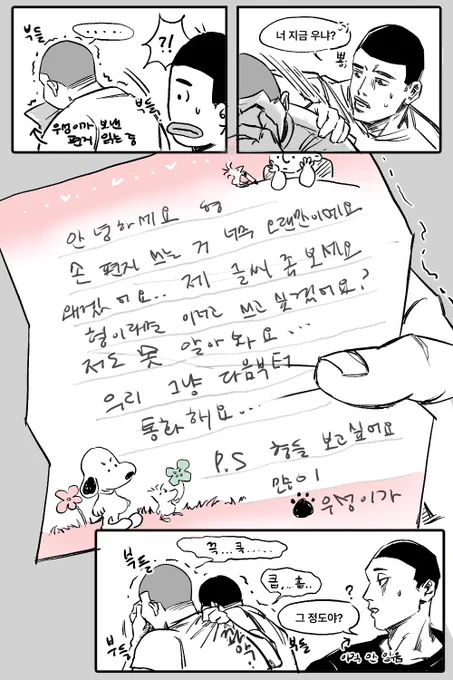 부들
......
?!
부들
우성이가 보낸
편지 읽는 중
너 지금 우냐?
뿅
안녕하세요 형
손 편지 쓰는 거 너무 오랜만이에요
왜겠어요.. 제 글씨 좀 보세요
형이라면 이러고 쓰고 싶겠어요?
저도 못 알아봐요...
우리 그냥 다음부터
통화해요...
P.S 형들 보고싶어요
많이
우성이가
부들
끅...큭...
큼,..흠..
?
그 정도야?
부들
부들
아직 안 읽음